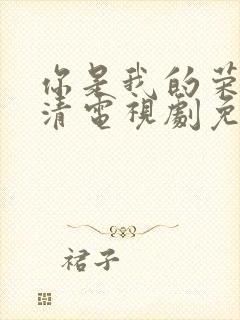 你是我的荣
清電視劇免
裙子